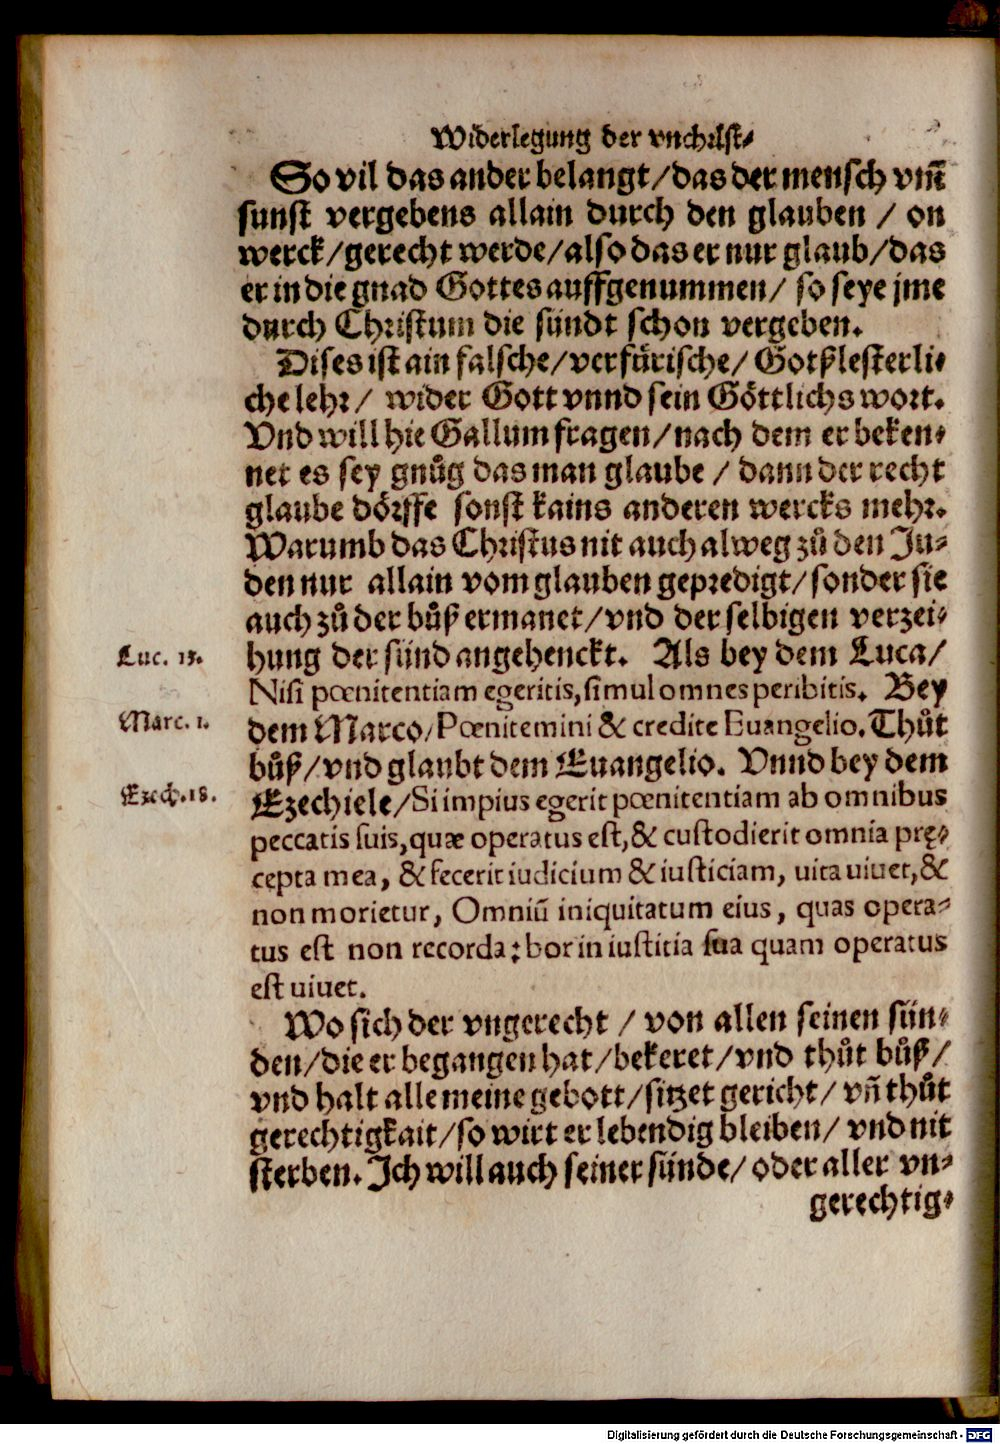 Widerlegung der vnchꝛist⸗
So vil das ander belangt/das der mensch vm̄
sunst vergebens allain durch den glauben / on
werck/gerecht werde/also das er nur glaub/das
er in die gnad Gottes auffgenummen/ so seye jme
durch Chꝛistum die sündt schon vergeben.
Dises ist ain falsche/verfürische/ Gotßlesterli⸗
che lehꝛ/ wider Gott vnnd sein Göttlichs woꝛt.
Vnd will hie Gallum fragen/nach dem er beken⸗
net es sey gnůg das man glaube / dann der recht
glaube döꝛffe sonst kains anderen wercks mehꝛ.
Warumb das Chꝛistus nit auch alweg zů den Ju⸗
den nur allain vom glauben gepꝛedigt/sonder sie
auch zů der bůß ermanet/vnd der selbigen verzei⸗
Luc. 13.
hung der sünd angehenckt. Als bey dem Luca/
Nisi pœnitentiam egeritis, simul omnes peribitis. Bey
Marc. 1.
dem Marco/Pœnitemini & credite Euangelio. Thůt
bůß/vnd glaubt dem Euangelio. Vnnd bey dem
Ezech. 18.
Ezechiele/Si impius egerit pœnitentiam ab omnibus
peccatis suis, quæ operatus est, & custodierit omnia prę⸗
cepta mea, & fecerit iudicium & iusticiam, uita uiuet, &
non morietur, Omniū iniquitatum eius, quas opera⸗
tus est non recorda:bor in iustitia sua quam operatus
est uiuet.
Wo sich der vngerecht / von allen seinen sün⸗
den/die er begangen hat/bekeret/vnd thůt bůß/
vnd halt alle meine gebott/sitzet gericht/ vn̄ thůt
gerechtigkait/so wirt er lebendig bleiben/ vnd nit
sterben. Ich will auch seiner sünde/ oder aller vn⸗
gerechtig⸗
Digitalisierung gefördert durch die Deutsche Forschungsgemeinschaft - DFG